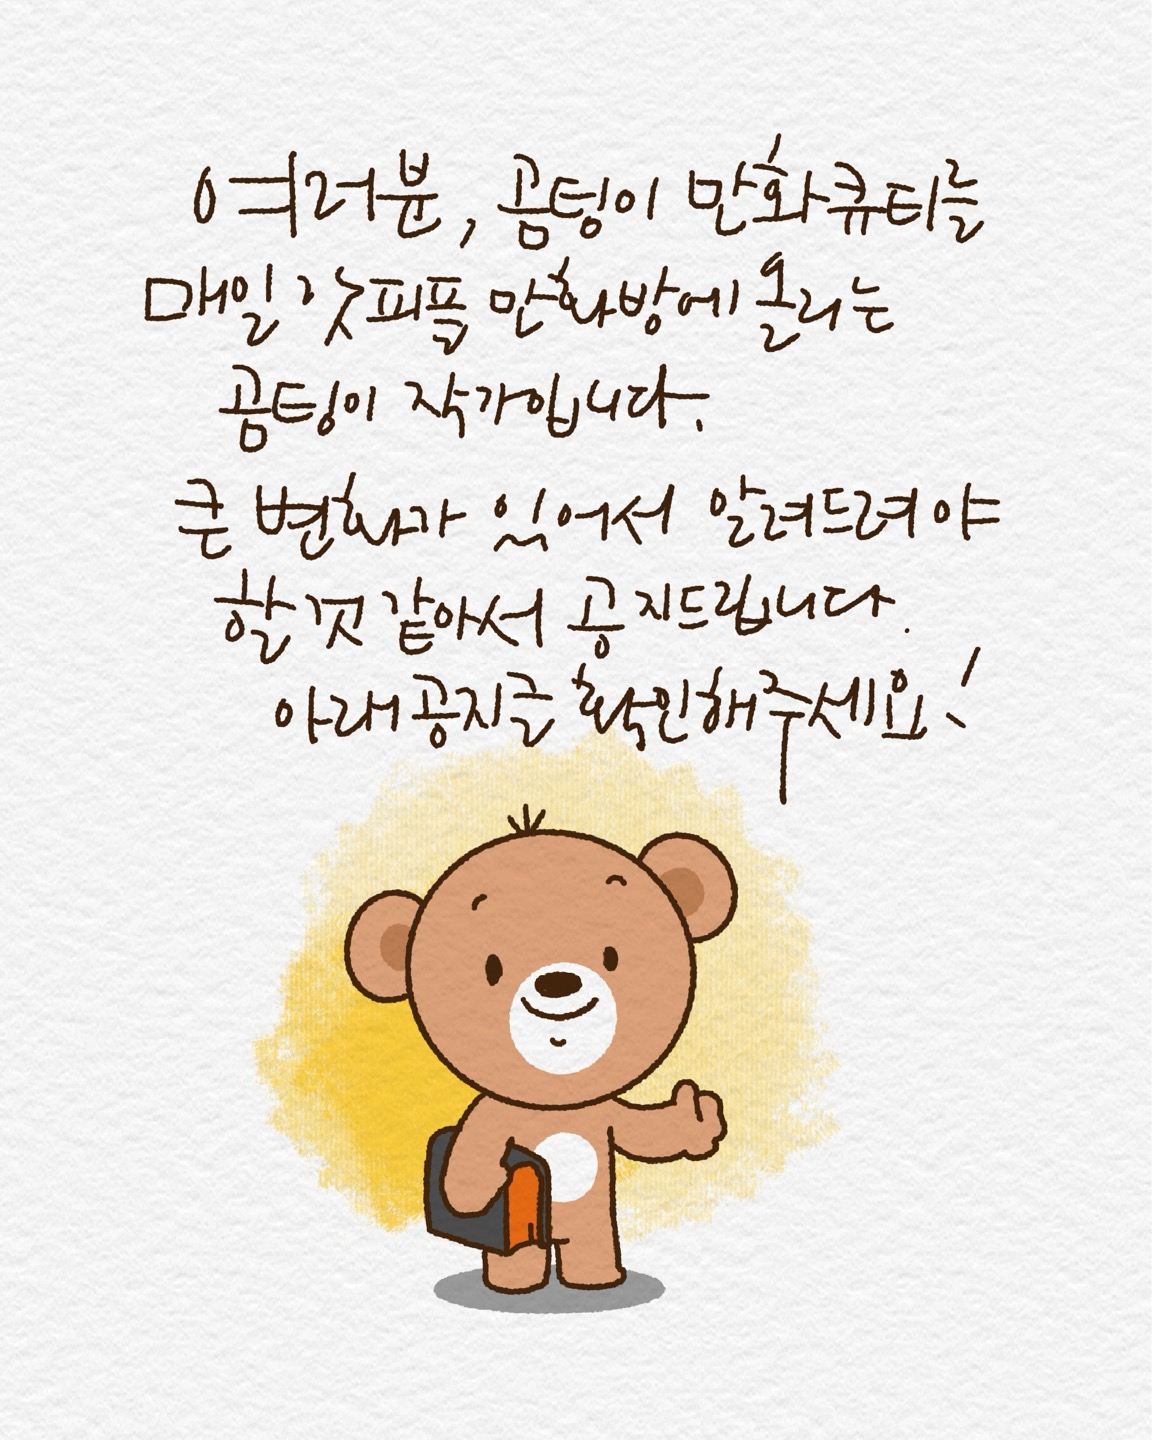 여러분, 곰팅이 만화큐티를
매일 갓피플 만화방에 올리는
곰팅이 작가입니다.
큰 변화가 있어서 알려드려야
할 것 같아서 공지드립니다.
아래 공지글 확인해주세요!